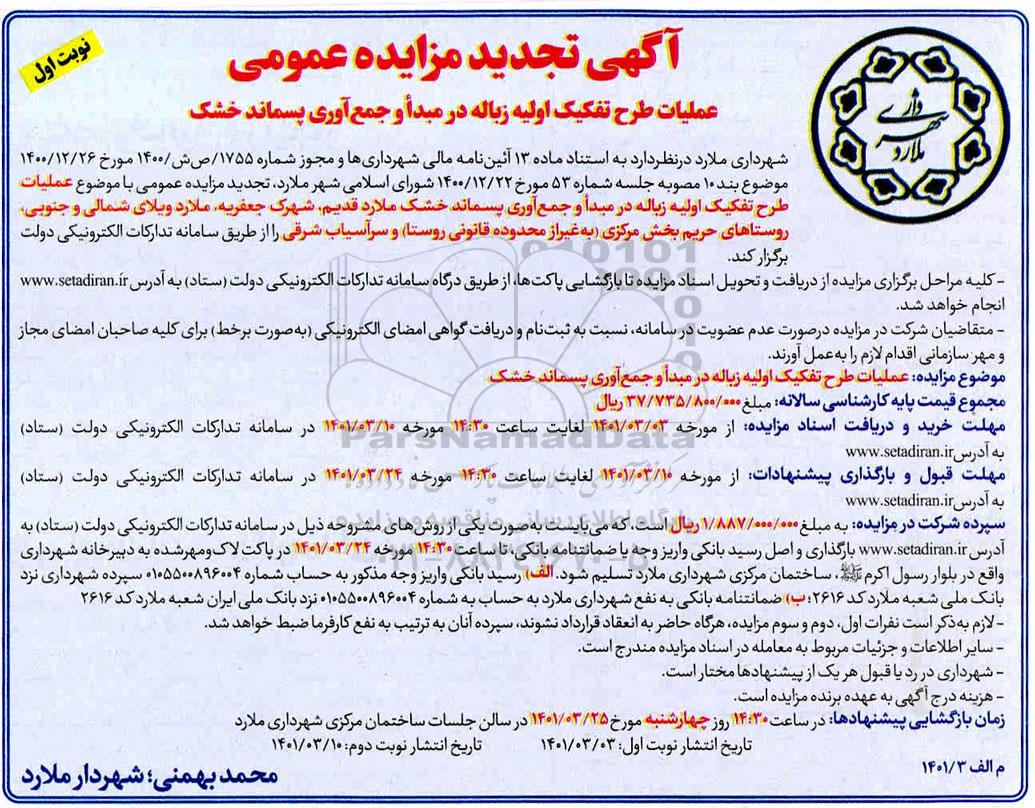 نوبت اول
آگهی تجدید مزایده عمومی
عملیات طرح تفکیک اولیه زباله در مبدأ و جمع‌آوری پسماند خشک
شهرداری ملارد
شهرداری ملارد درنظردارد به استناد ماده ۱۳ آئین‌نامه مالی شهرداری‌ها و مجوز شماره ۱۷۵۵/ص‌ش/۱۴۰۰ مورخ ۱۴۰۰/۱۲/۲۶
موضوع بند ۱۰ مصوبه جلسه شماره ۵۳ مورخ ۱۴۰۰/۱۲/۲۲ شورای اسلامی شهر ملارد، تجدید مزایده عمومی با موضوع عملیات
طرح تفکیک اولیه زباله در مبدأ و جمع‌آوری پسماند خشک ملارد قدیم، شهرک جعفریه، ملارد ویلای شمالی و جنوبی،
روستاهای حریم بخش مرکزی (به‌غیراز محدوده قانونی روستا) و سرآسیاب شرقی را از طریق سامانه تدارکات الکترونیکی دولت
برگزار کند.
- کلیه مراحل برگزاری مزایده از دریافت و تحویل اسناد مزایده تا بازگشایی پاکت‌ها، از طریق درگاه سامانه تدارکات الکترونیکی دولت (ستاد) به آدرس www.setadiran.ir
انجام خواهد شد.
- متقاضیان شرکت در مزایده درصورت عدم عضویت در سامانه، نسبت به ثبت‌نام و دریافت گواهی امضای الکترونیکی (به‌صورت برخط) برای کلیه صاحبان امضای مجاز
و مهر سازمانی اقدام لازم را به‌عمل آورند.
موضوع مزایده: عملیات طرح تفکیک اولیه زباله در مبدأ و جمع‌آوری پسماند خشک
مجموع قیمت پایه کارشناسی سالانه: مبلغ ۳۷/۷۳۵/۸۰۰/۰۰۰ ریال
مهلت خرید و دریافت اسناد مزایده: از مورخه ۱۴۰۱/۰۳/۰۳ لغایت ساعت ۱۴:۳۰ مورخه ۱۴۰۱/۰۳/۱۰ در سامانه تدارکات الکترونیکی دولت (ستاد)
به آدرس www.setadiran.ir
مهلت قبول و بارگذاری پیشنهادات: از مورخه ۱۴۰۱/۰۳/۱۰ لغایت ساعت ۱۴:۳۰ مورخه ۱۴۰۱/۰۳/۲۴ در سامانه تدارکات الکترونیکی دولت (ستاد)
به آدرس www.setadiran.ir
سپرده شرکت در مزایده: به مبلغ ۱/۸۸۷/۰۰۰/۰۰۰ ریال است که می‌بایست به‌صورت یکی از روش‌های مشروحه ذیل در سامانه تدارکات الکترونیکی دولت (ستاد) به
آدرس www.setadiran.ir بارگذاری و اصل رسید بانکی واریز وجه یا ضمانتنامه بانکی، تا ساعت ۱۴:۳۰ مورخه ۱۴۰۱/۰۳/۲۴ در پاکت لاک‌ومهرشده به دبیرخانه شهرداری
واقع در بلوار رسول اکرم ﷺ، ساختمان مرکزی شهرداری ملارد تسلیم شود. الف) رسید بانکی واریز وجه مذکور به حساب شماره ۰۱۰۵۵۰۰۸۹۶۰۰۴ سپرده شهرداری نزد
بانک ملی شعبه ملارد کد ۲۶۱۶؛ ب) ضمانتنامه بانکی به نفع شهرداری ملارد به حساب به شماره ۰۱۰۵۵۰۰۸۹۶۰۰۴ نزد بانک ملی ایران شعبه ملارد کد ۲۶۱۶
- لازم به‌ذکر است نفرات اول، دوم و سوم مزایده، هرگاه حاضر به انعقاد قرارداد نشوند، سپرده آنان به ترتیب به نفع کارفرما ضبط خواهد شد.
- سایر اطلاعات و جزئیات مربوط به معامله در اسناد مزایده مندرج است.
- شهرداری در رد یا قبول هر یک از پیشنهادها مختار است.
- هزینه درج آگهی به عهده برنده مزایده است.
زمان بازگشایی پیشنهادها: در ساعت ۱۴:۳۰ روز چهارشنبه مورخ ۱۴۰۱/۰۳/۲۵ در سالن جلسات ساختمان مرکزی شهرداری ملارد
تاریخ انتشار نوبت اول: ۱۴۰۱/۰۳/۰۳ تاریخ انتشار نوبت دوم: ۱۴۰۱/۰۳/۱۰
م الف ۱۴۰۱/۳
محمد بهمنی؛ شهردار ملارد
ParsNamadData